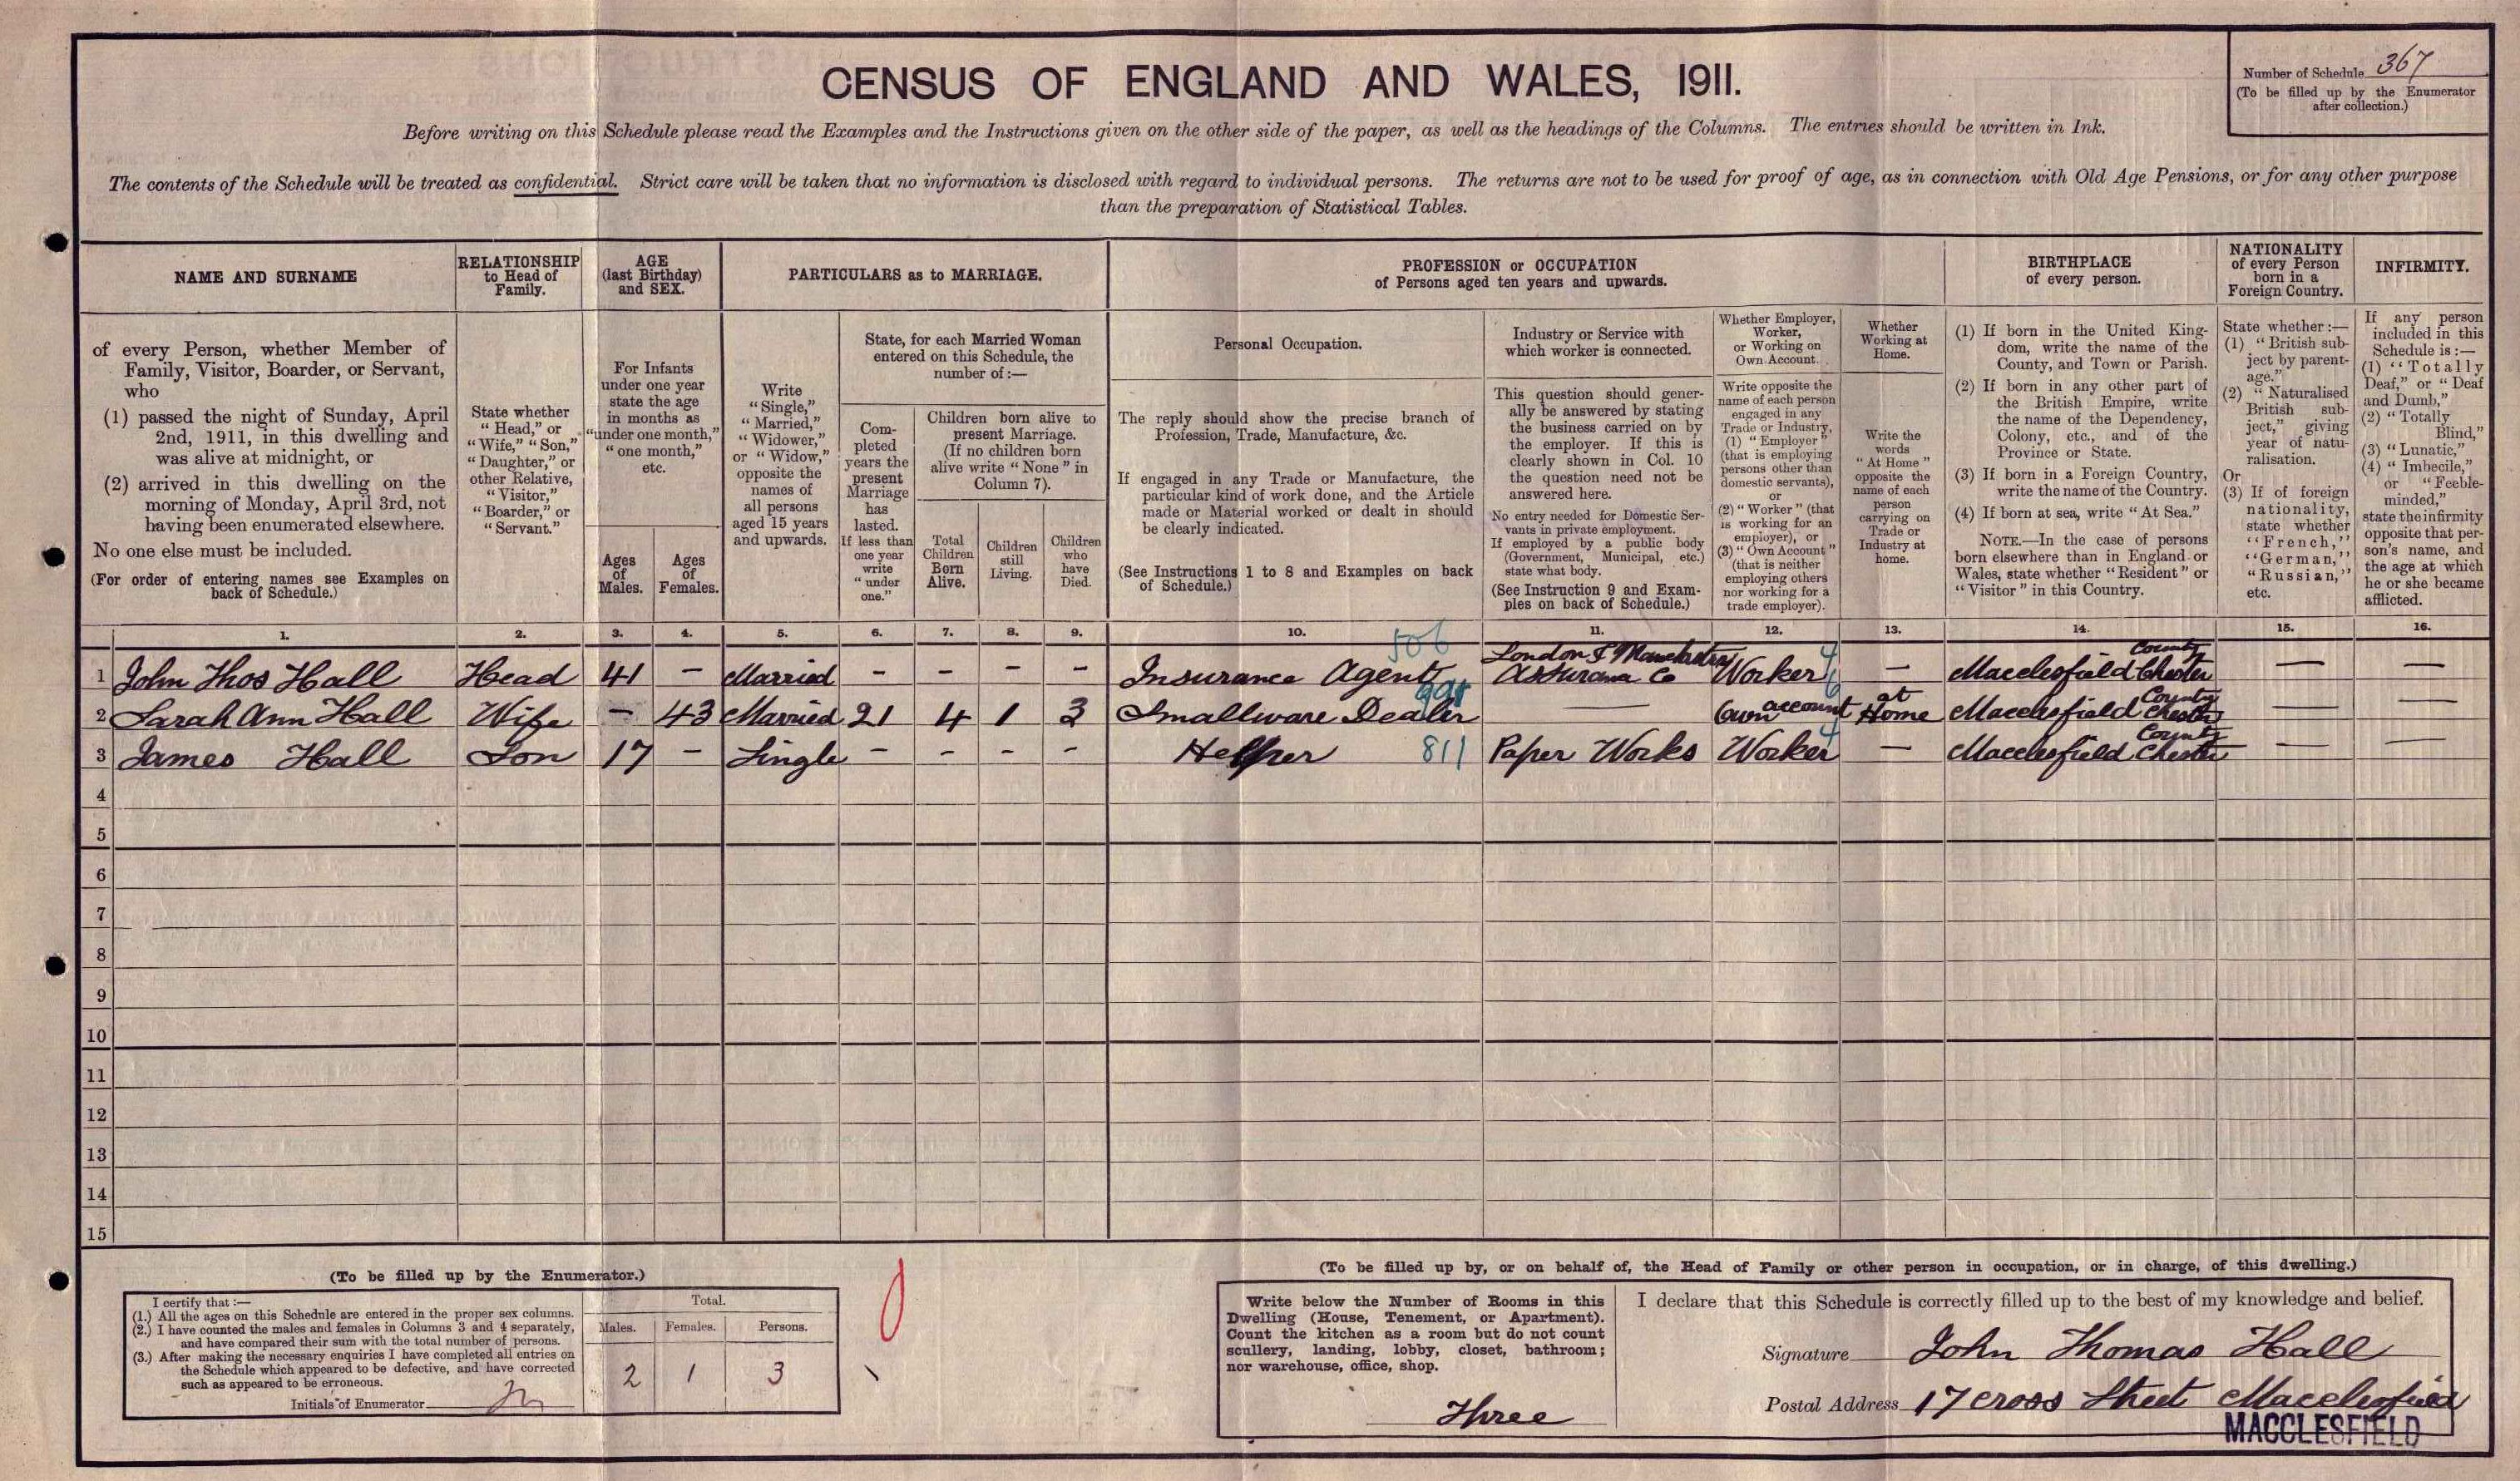 CENSUS OF ENGLAND AND WALES, 1911.
Number of Schedule 367
(To be filled up by the Enumerator
after collection.)
Before writing on this Schedule please read the Examples and the Instructions given on the other side of the paper, as well as the headings of the Columns. The entries should be written in Ink.
The contents of the Schedule will be treated as confidential. Strict care will be taken that no information is disclosed with regard to individual persons. The returns are not to be used for proof of age, as in connection with Old Age Pensions, or for any other purpose
than the preparation of Statistical Tables.
NAME AND SURNAME
of every Person, whether Member of
Family, Visitor, Boarder, or Servant,
who
(1) passed the night of Sunday, April
2nd, 1911, in this dwelling and
was alive at midnight, or
(2) arrived in this dwelling on the
morning of Monday, April 3rd, not
having been enumerated elsewhere.
No one else must be included.
(For order of entering names see Examples on
back of Schedule.)
RELATIONSHIP
to Head of
Family.
State whether
"Head," or
"Wife," "Son,"
"Daughter," or
other Relative,
"Visitor,"
"Boarder," or
"Servant."
AGE
(last Birthday)
and SEX.
For Infants
under one year
state the age
in months as
"under one month,"
"one month,"
etc.
Ages
of
Males.
Ages
of
Females.
PARTICULARS as to MARRIAGE.
Write
"Single,"
"Married,"
"Widower,"
or "Widow,"
opposite the
names of
all persons
aged 15 years
and upwards.
State, for each Married Woman
entered on this Schedule, the
number of:—
Com-
pleted
years the
present
Marriage
has
lasted.
If less than
one year
write
"under
one."
Children born alive to
present Marriage.
(If no children born
alive write "None" in
Column 7).
Total
Children
Born
Alive.
Children
still
Living.
Children
who
have
Died.
PROFESSION or OCCUPATION
of Persons aged ten years and upwards.
Personal Occupation.
The reply should show the precise branch of
Profession, Trade, Manufacture, &c.
If engaged in any Trade or Manufacture, the
particular kind of work done, and the Article
made or Material worked or dealt in should
be clearly indicated.
(See Instructions 1 to 8 and Examples on back
of Schedule.)
Industry or Service with
which worker is connected.
This question should gener-
ally be answered by stating
the business carried on by
the employer. If this is
clearly shown in Col. 10
the question need not be
answered here.
No entry needed for Domestic Ser-
vants in private employment.
If employed by a public body
(Government, Municipal, etc.)
state what body.
(See Instruction 9 and Exam-
ples on back of Schedule.)
Whether Employer,
Worker,
or Working on
Own Account.
Write opposite the
name of each person
engaged in any
Trade or Industry,
(1) "Employer"
(that is employing
persons other than
domestic servants),
or
(2) "Worker" (that
is working for an
employer), or
(3) "Own Account"
(that is neither
employing others
nor working for a
trade employer).
Whether
Working at
Home.
Write the
words
"At Home"
opposite the
name of each
person
carrying on
Trade or
Industry at
home.
BIRTHPLACE
of every person.
(1) If born in the United King-
dom, write the name of the
County, and Town or Parish.
(2) If born in any other part of
the British Empire, write
the name of the Dependency,
Colony, etc., and of the
Province or State.
(3) If born in a Foreign Country,
write the name of the Country.
(4) If born at sea, write "At Sea."
NOTE.—In the case of persons
born elsewhere than in England or
Wales, state whether "Resident" or
"Visitor" in this Country.
NATIONALITY
of every Person
born in a
Foreign Country.
State whether:—
(1) "British sub-
ject by parent-
age."
(2) "Naturalised
British sub-
ject," giving
year of natu-
ralisation.
Or
(3) If of foreign
nationality,
state whether
"French,"
"German,"
"Russian,"
etc.
INFIRMITY.
If any person
included in this
Schedule is:—
(1) "Totally
Deaf," or "Deaf
and Dumb,"
(2) "Totally
Blind,"
(3) "Lunatic,"
(4) "Imbecile,"
or "Feeble-
minded,"
state the infirmity
opposite that per-
son's name, and
the age at which
he or she became
afflicted.
1. 2. 3. 4. 5. 6. 7. 8. 9. 10. 11. 12. 13. 14. 15. 16.
1 John Thos Hall Head 41 – Married – – – – Insurance Agent 506 London & Manchester Assurance Co Worker 4 — Macclesfield County Chester — —
2 Sarah Ann Hall Wife – 43 Married 21 4 1 3 Smallware Dealer — Own account 6 at Home Macclesfield County Chester — —
3 James Hall Son 17 – Single – – – – Helper 811 Paper Works Worker 4 — Macclesfield County Chester — —
4
5
6
7
8
9
10
11
12
13
14
15
(To be filled up by the Enumerator.)
I certify that:—
(1.) All the ages on this Schedule are entered in the proper sex columns.
(2.) I have counted the males and females in Columns 3 and 4 separately,
and have compared their sum with the total number of persons.
(3.) After making the necessary enquiries I have completed all entries on
the Schedule which appeared to be defective, and have corrected
such as appeared to be erroneous.
Initials of Enumerator
Total.
Males. Females. Persons.
2 1 3
(To be filled up by, or on behalf of, the Head of Family or other person in occupation, or in charge, of this dwelling.)
Write below the Number of Rooms in this
Dwelling (House, Tenement, or Apartment).
Count the kitchen as a room but do not count
scullery, landing, lobby, closet, bathroom;
nor warehouse, office, shop.
Three
I declare that this Schedule is correctly filled up to the best of my knowledge and belief.
Signature John Thomas Hall
Postal Address 17 Cross Street Macclesfield
MACCLESFIELD